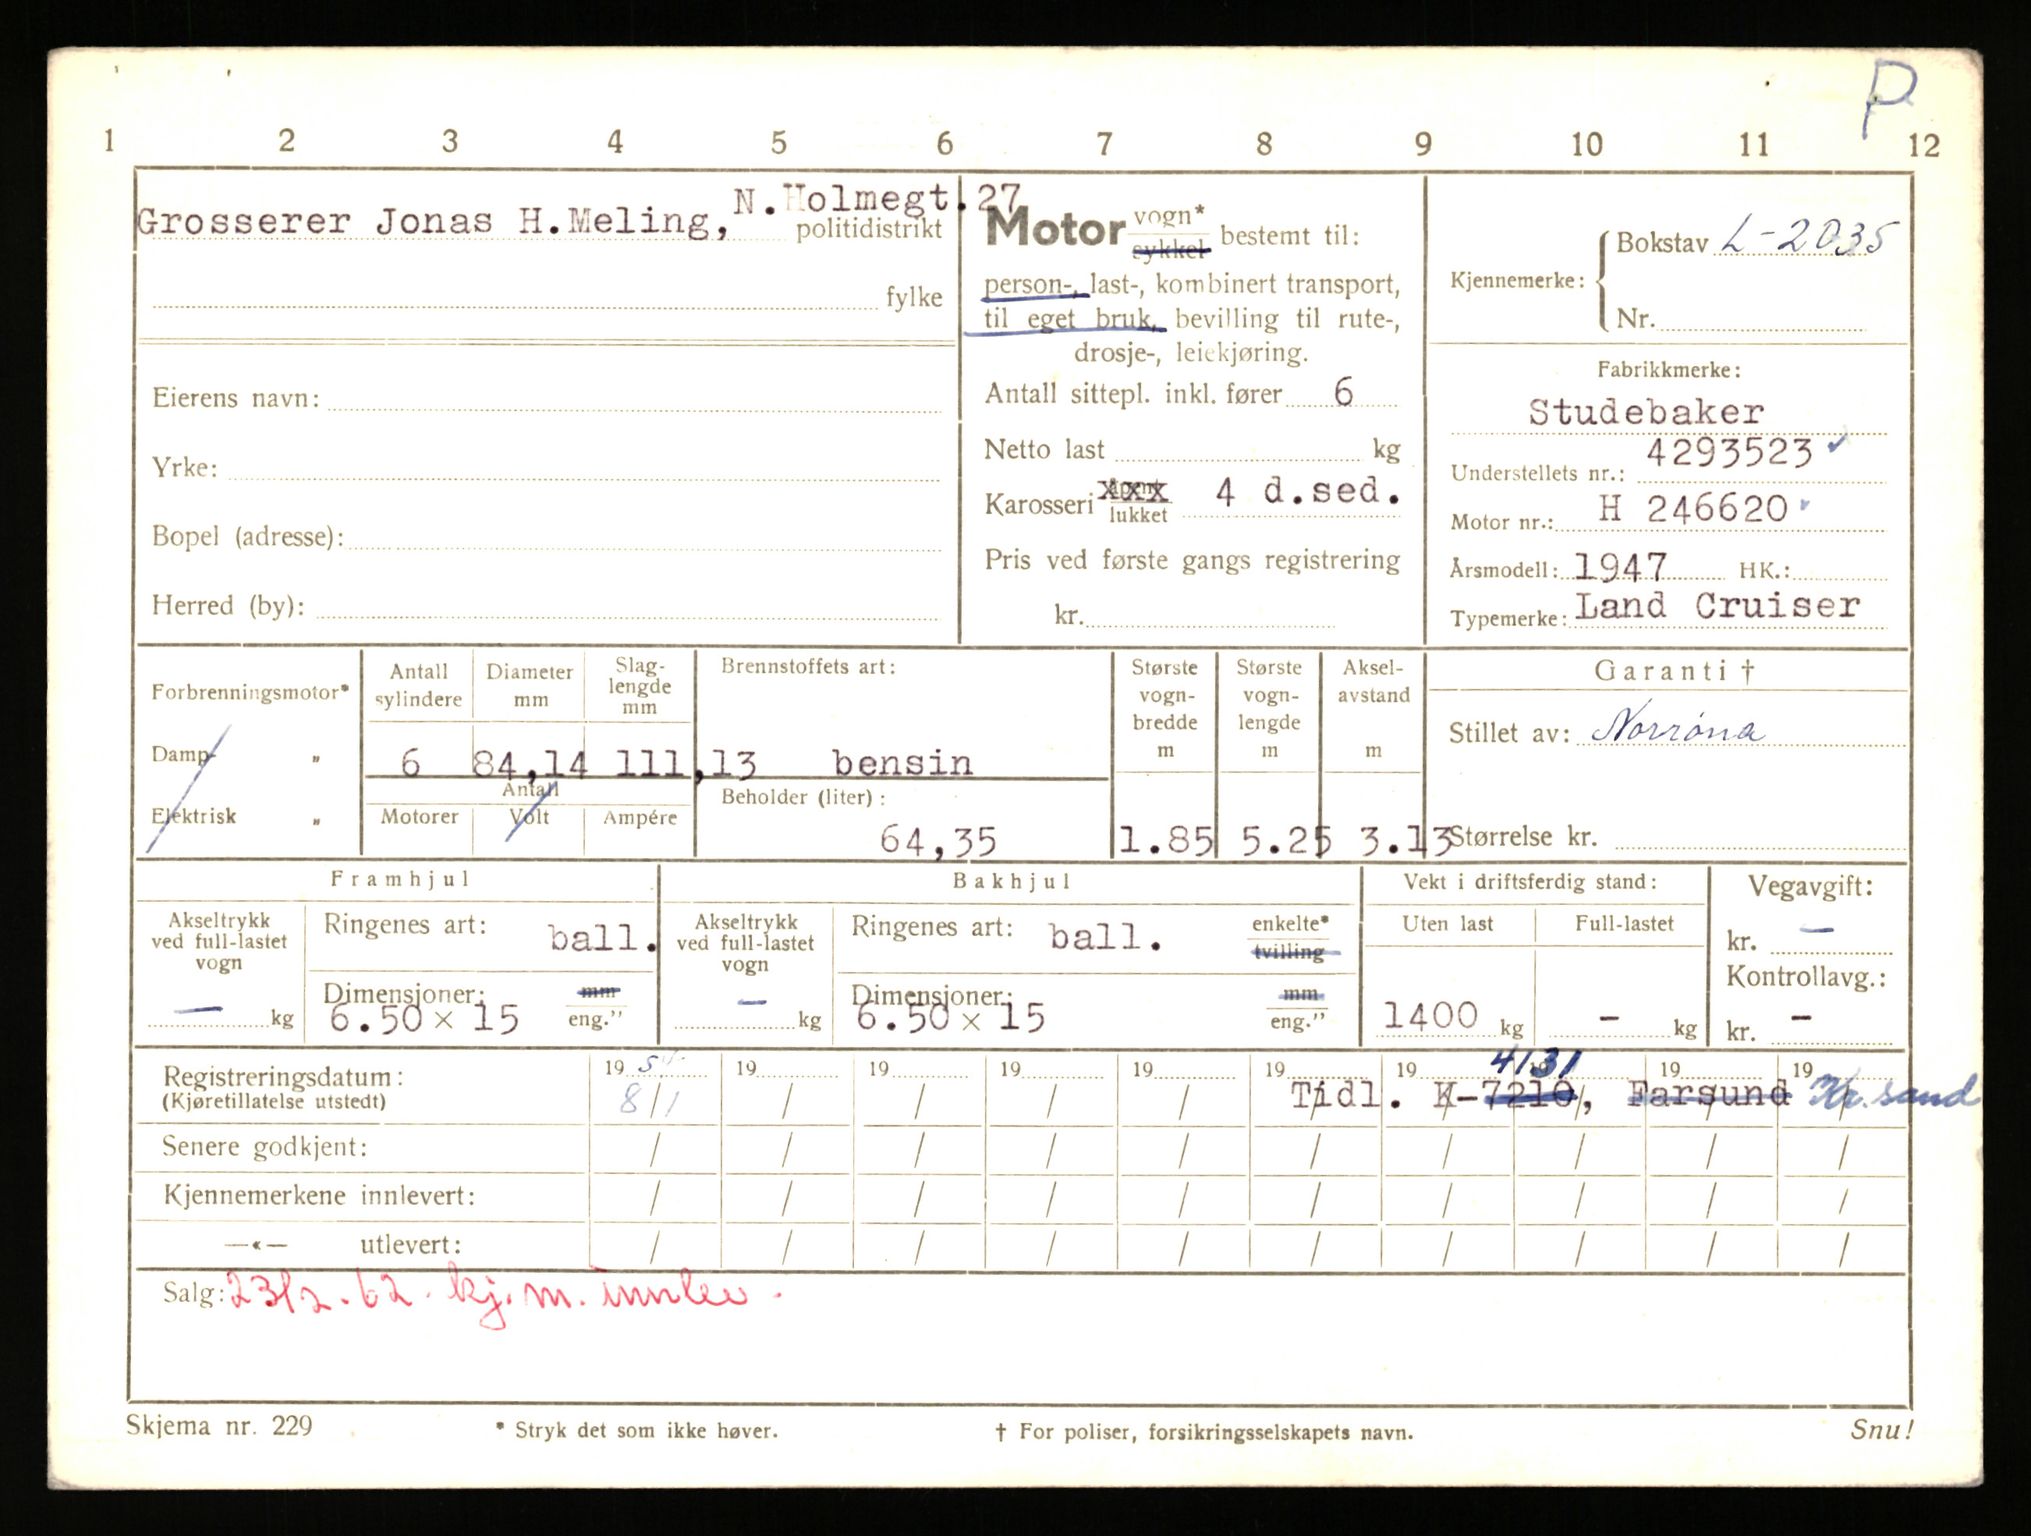 P
1 2 3 4 5 6 7 8 9 10 11 12
Grosserer Jonas H.Meling, N.Holmegt.27
politidistrikt
fylke
Eierens navn:
Yrke:
Bopel (adresse):
Herred (by):
Motor vogn* sykkel bestemt til:
person-, last-, kombinert transport,
til eget bruk, bevilling til rute-,
drosje-, leiekjøring.
Antall sittepl. inkl. fører 6
Netto last kg
Karosseri åpent xxx lukket 4 d.sed.
Pris ved første gangs registrering
kr.
Kjennemerke: Bokstav L-2035
Nr.
Fabrikkmerke:
Studebaker
Understellets nr.: 4293523
Motor nr.: H 246620
Årsmodell: 1947 HK.:
Typemerke: Land Cruiser
Forbrenningsmotor*
Damp- "
Elektrisk "
Antall sylindere
Diameter mm
Slag-lengde mm
6 84,14 111,13
Antall
Motorer Volt Ampére
Brennstoffets art:
bensin
Beholder (liter):
64,35
Største vogn-bredde m
1.85
Største vogn-lengde m
5.25
Aksel-avstand m
3.13
Garanti †
Stillet av: Norröna
Størrelse kr.
Framhjul
Akseltrykk ved full-lastet vogn
— kg
Ringenes art: ball.
Dimensjoner: mm
6.50 x 15 eng."
Bakhjul
Akseltrykk ved full-lastet vogn
— kg
Ringenes art: ball. enkelte* tvilling
Dimensjoner: mm
6.50 x 15 eng."
Vekt i driftsferdig stand:
Uten last Full-lastet
1400 kg - kg
Vegavgift:
kr. —
Kontrollavg.:
kr. -
Registreringsdatum:
(Kjøretillatelse utstedt)
19 54 19 19 19 19 19 19 19 19 19
8/1 / / / / / / / / /
4131
Tidl. K-7210, Farsund Kr.sand
Senere godkjent: / / / / / / / / / /
Kjennemerkene innlevert: / / / / / / / / / /
—«— utlevert: / / / / / / / / / /
Salg: 23/2.62. kj.m. innlev.
Skjema nr. 229
* Stryk det som ikke høver.
† For poliser, forsikringsselskapets navn.
Snu!